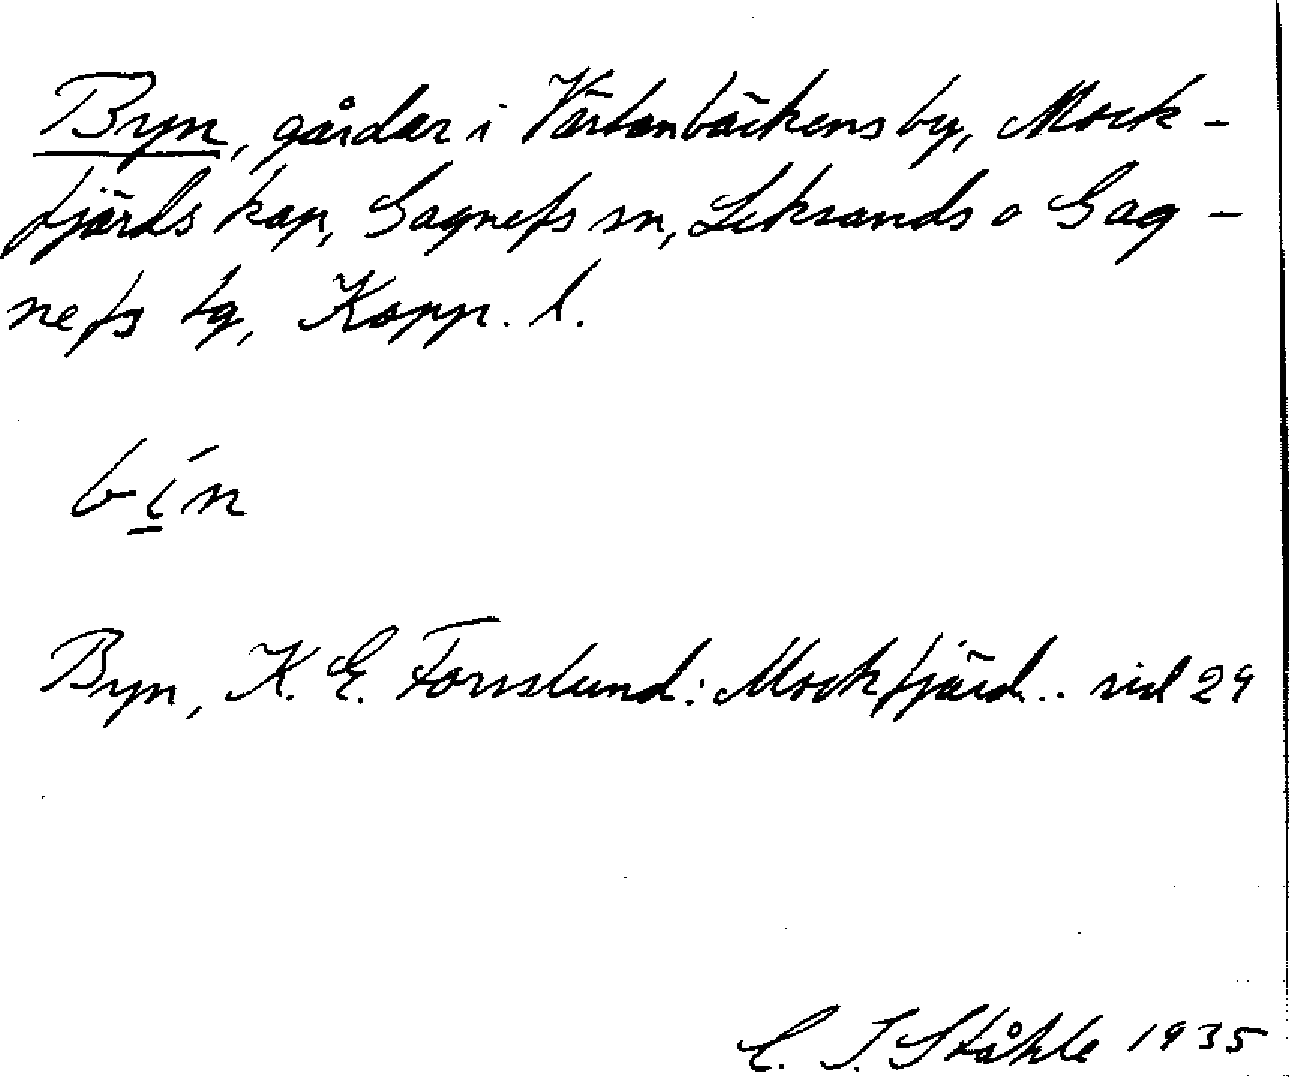 Byn, gårdar i Värtanbäckens by, Mock-
fjärds kap, Gagnefs sn, Leksands o Gag-
nefs tg, Kopp. l.
b í̲ n
Byn, K. E. Forsslund: Mockfjärd.. sid 29
C. I. Ståhle 1935